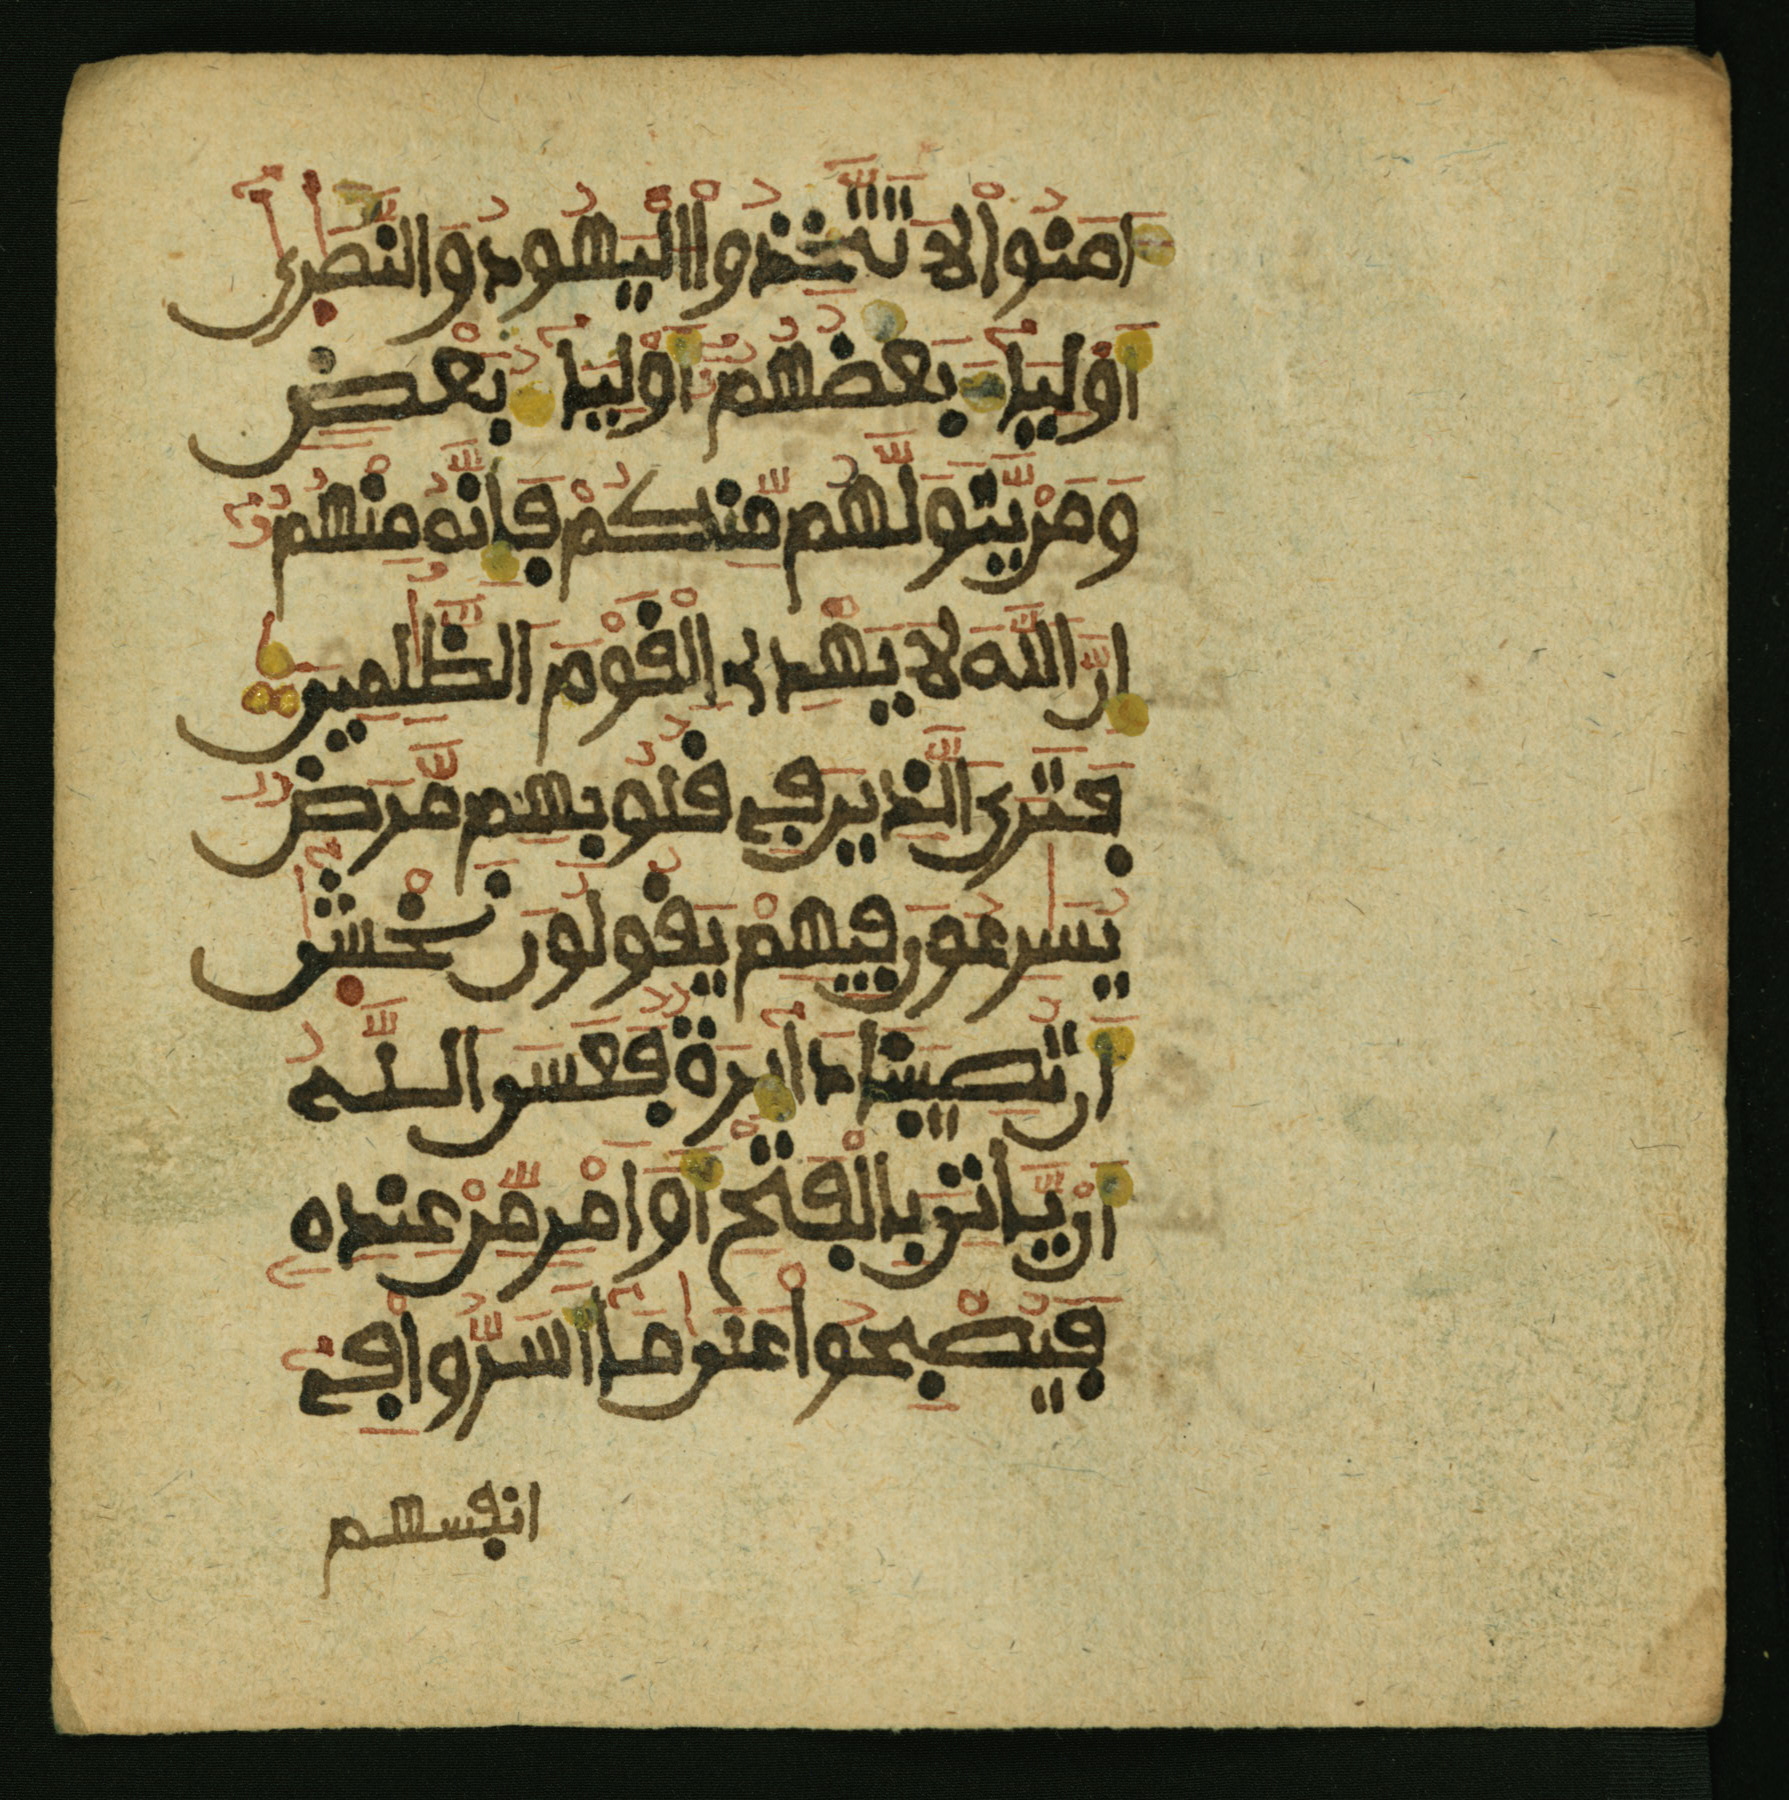 ءَامَنُواْ لَا تَتَّخِذُواْ الْيَهُودَ وَالنَّصَٰرَىٰٓ
أَوْلِيَآءَ بَعْضُهُمُۥٓ أَوْلِيَآءُ بَعْضٍ
وَمَنْ يَّتَوَلَّهُم مِّنكُمْ فَإِنَّهُۥ مِنْهُمُۥٓ
إِنَّ اللَّهَ لَا يَهْدِى الْقَوْمَ الظَّٰلِمِينَ
فَتَرَى الَّذِينَ فِى قُلُوبِهِم مَّرَضٌ
يُسَٰرِعُونَ فِيهِمْ يَقُولُونَ نَخْشَىٰٓ
أَن تُصِيبَنَا دَآئِرَةٌ فَعَسَى اللَّهُ
أَنْ يَّاتِىَ بِالْفَتْحِ أَوَ اَمْرٍ مِّنْ عِندِهِۦ
فَيُصْبِحُواْ عَلَىٰ مَآ أَسَرُّواْ فِىٓ
انفسهم